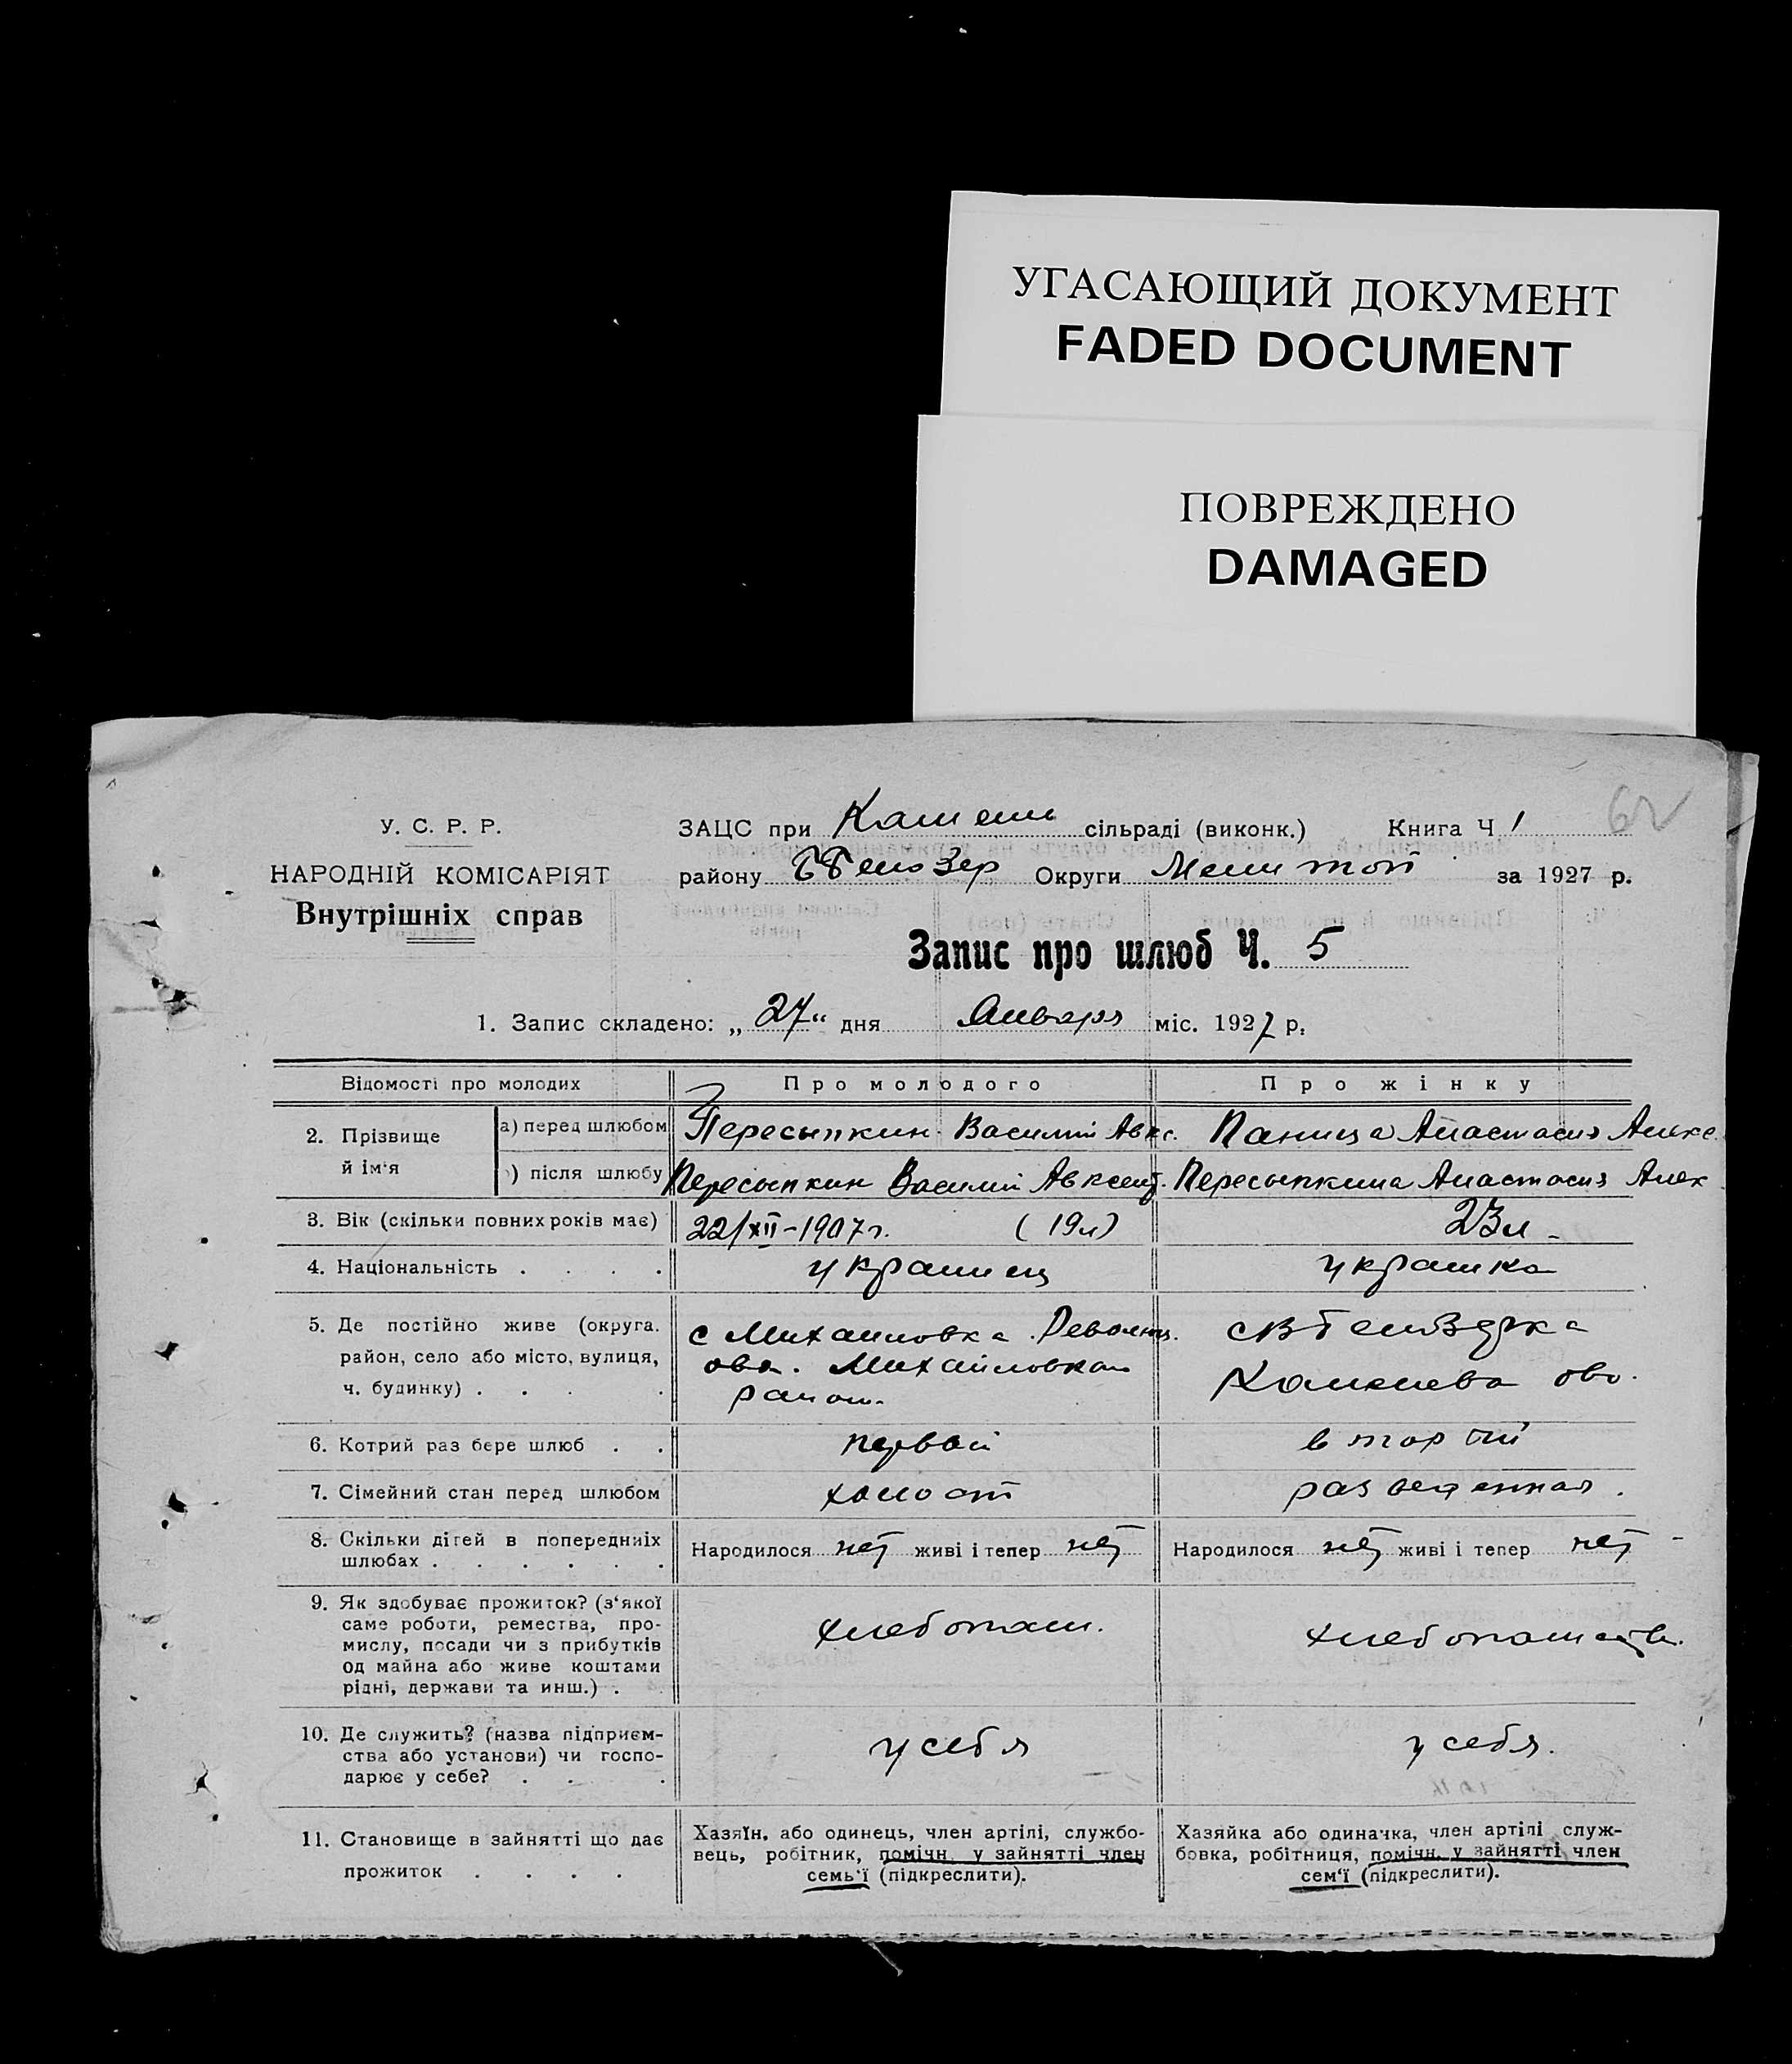 УГАСАЮЩИЙ ДОКУМЕНТ
FADED DOCUMENT
ПОВРЕЖДЕНО
DAMAGED
62
У. С. Р. Р.
НАРОДНІЙ КОМІСАРІЯТ
Внутрішніх справ
ЗАЦС при сільраді (виконк.) Книга Ч 1
району Округи Мелитоп за 1927 р.
Запис про шлюб Ч. 5
1. Запис складено: „ 27 “ дня Января міс. 1927 р.
Відомості про молодих
Про молодого
Про жінку
2. Прізвище й ім‘я
а) перед шлюбом
Пересыпкин Василий Авкс.
Панища Анастасия Алекс
) після шлюбу
Пересыпкин Василий Авксент.
Пересыпкина Анастасия Алек
3. Вік (скільки повних років має)
22/XII-1907 г. (19 л)
23 л -
4. Національність . . . .
украинец
украинка
5. Де постійно живе (округа.
район, село або місто, вулиця,
ч. будинку) . . . .
с Михайловка
Михайловкой
район.
6. Котрий раз бере шлюб . .
первый
второй
7. Сімейний стан перед шлюбом
холост
разведенная .
8. Скільки дітей в попередніх
шлюбах . . . . . .
Народилося нет живі і тепер нет
Народилося нет живі і тепер нет -
9. Як здобуває прожиток? (з‘якої
саме роботи, ремества, про-
мислу, посади чи з прибутків
од майна або живе коштами
рідні, держави та инш.) .
хлебопаш.
10. Де служить? (назва підприєм-
ства або установи) чи госпо-
дарює у себе? . . .
у себя
у себя.
11. Становище в зайнятті що дає
прожиток . . . .
Хазяїн, або одинець, член артілі, службо-
вець, робітник, помічн. у зайнятті член
семь‘ї (підкреслити).
Хазяйка або одиначка, член артілі служ-
бовка, робітниця, помічн. у зайнятті член
сем‘ї (підкреслити).